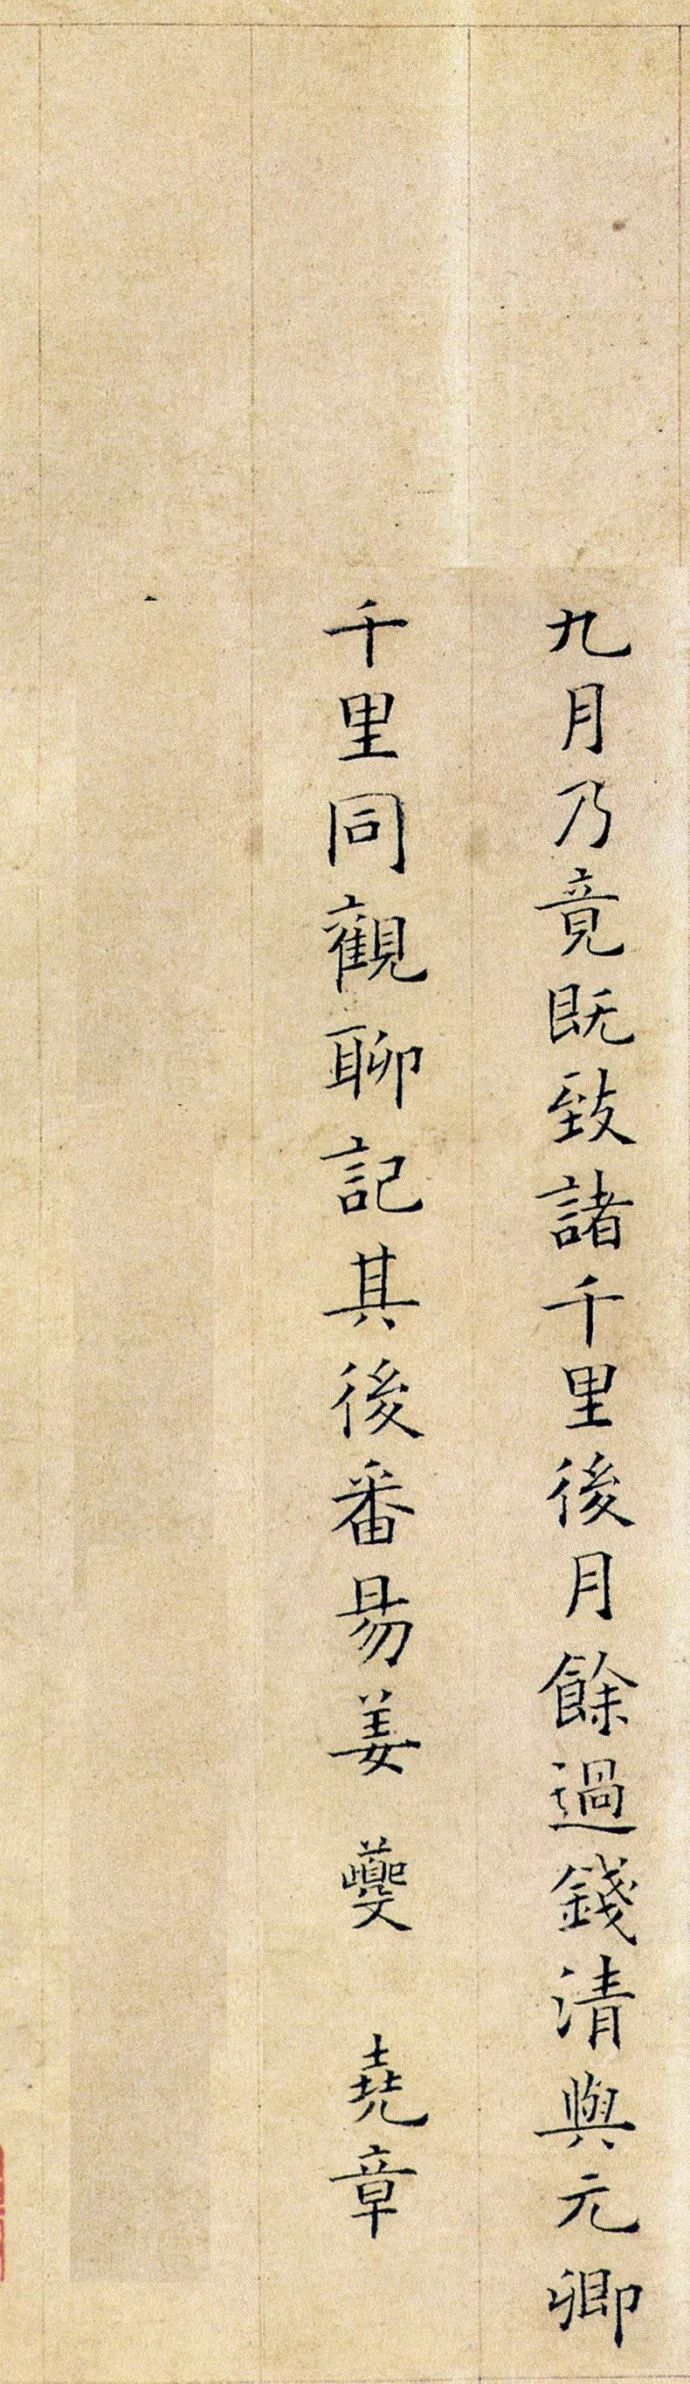 九月乃竟既致諸千里後月餘過錢清與元卿
千里同觀聊記其後番昜姜夔堯章